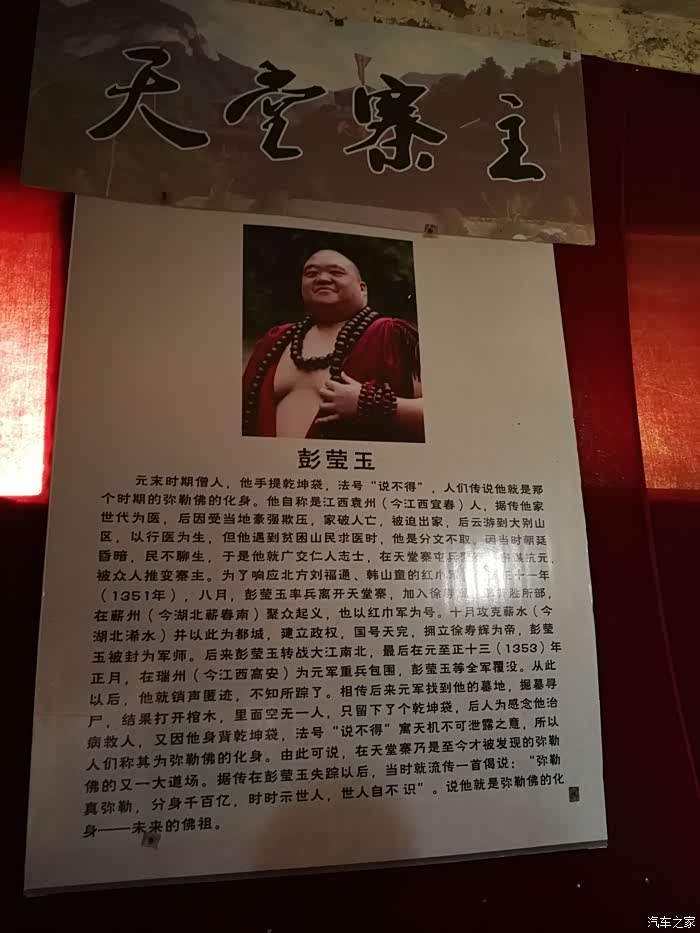 天堂寨主
彭莹玉
元末时期僧人，他手提乾坤袋，法号“说不得”，人们传说他就是那
个时期的弥勒佛的化身。他自称是江西袁州（今江西宜春）人，据传他家
世代为医，后因受当地豪强欺压，家破人亡，被迫出家，后云游到大别山
区，以行医为生，但他遇到贫困山民求医时，他是分文不取。因当时朝廷
昏暗，民不聊生，于是他就广交仁人志士，在天堂寨屯兵 谋抗元，
被众人推变寨主。为了响应北方刘福通、韩山童的红巾 十一年
（1351年），八月，彭莹玉率兵离开天堂寨，加入徐寿 胜所部，
在蕲州（今湖北蕲春南）聚众起义，也以红巾军为号。十月攻克蕲水（今
湖北浠水）并以此为都城，建立政权，国号天完，拥立徐寿辉为帝，彭莹
玉被封为军师。后来彭莹玉转战大江南北，最后在元至正十三（1353）年
正月，在瑞州（今江西高安）为元军重兵包围，彭莹玉等全军覆没。从此
以后，他就销声匿迹，不知所踪了。相传后来元军找到他的墓地，掘墓寻
尸，结果打开棺木，里面空无一人，只留下了个乾坤袋，后人为感念他治
病救人，又因他身背乾坤袋，法号“说不得”寓天机不可泄露之意，所以
人们称其为弥勒佛的化身。由此可说，在天堂寨乃是至今才被发现的弥勒
佛的又一大道场。据传在彭莹玉失踪以后，当时就流传一首偈说：“弥勒
真弥勒，分身千百亿，时时示世人，世人自不识”。说他就是弥勒佛的化
身——未来的佛祖。
汽车之家